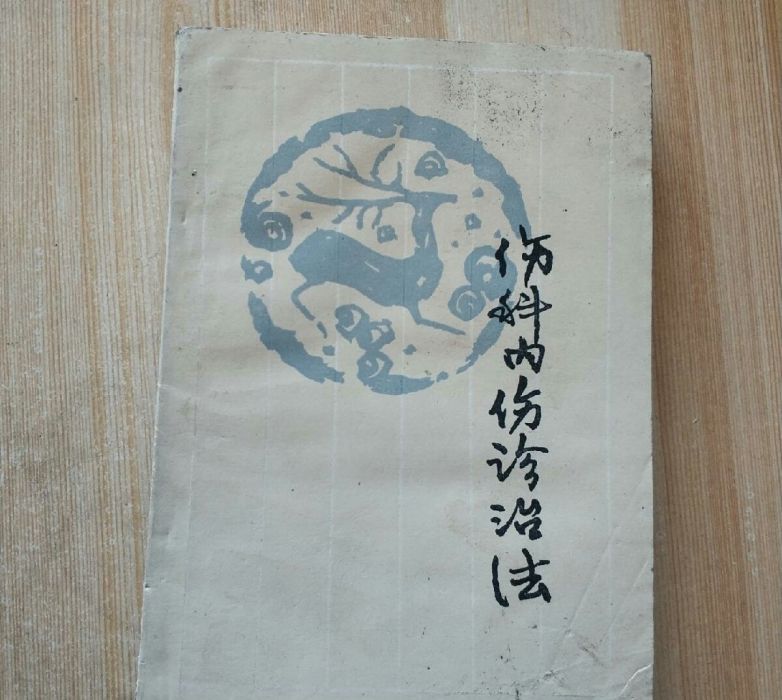 伤科内伤诊治法